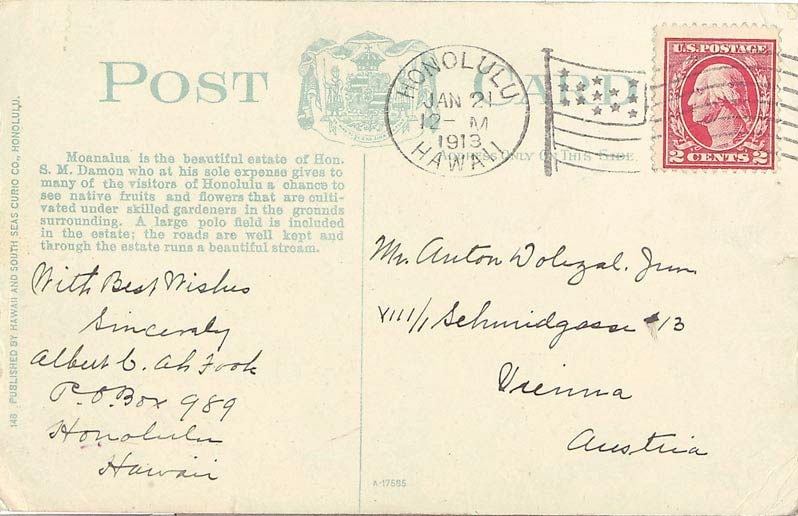 POST CARD
HONOLULU
JAN 21
12- M
1913
HAWAII
U.S. POSTAGE
2 CENTS 2
ADDRESS ONLY ON THIS SIDE.
Moanalua is the beautiful estate of Hon.
S. M. Damon who at his sole expense gives to
many of the visitors of Honolulu a chance to
see native fruits and flowers that are culti-
vated under skilled gardeners in the grounds
surrounding. A large polo field is included
in the estate; the roads are well kept and
through the estate runs a beautiful stream.
With Best Wishes
Sincerely
Albert C. Ah Fook
P.O. Box 989
Honolulu
Hawaii
Mr. Anton Dolezal. Jun
VIII/1 Schmidgasse #13
Vienna
Austria
148 PUBLISHED BY HAWAII AND SOUTH SEAS CURIO CO., HONOLULU.
A-17585